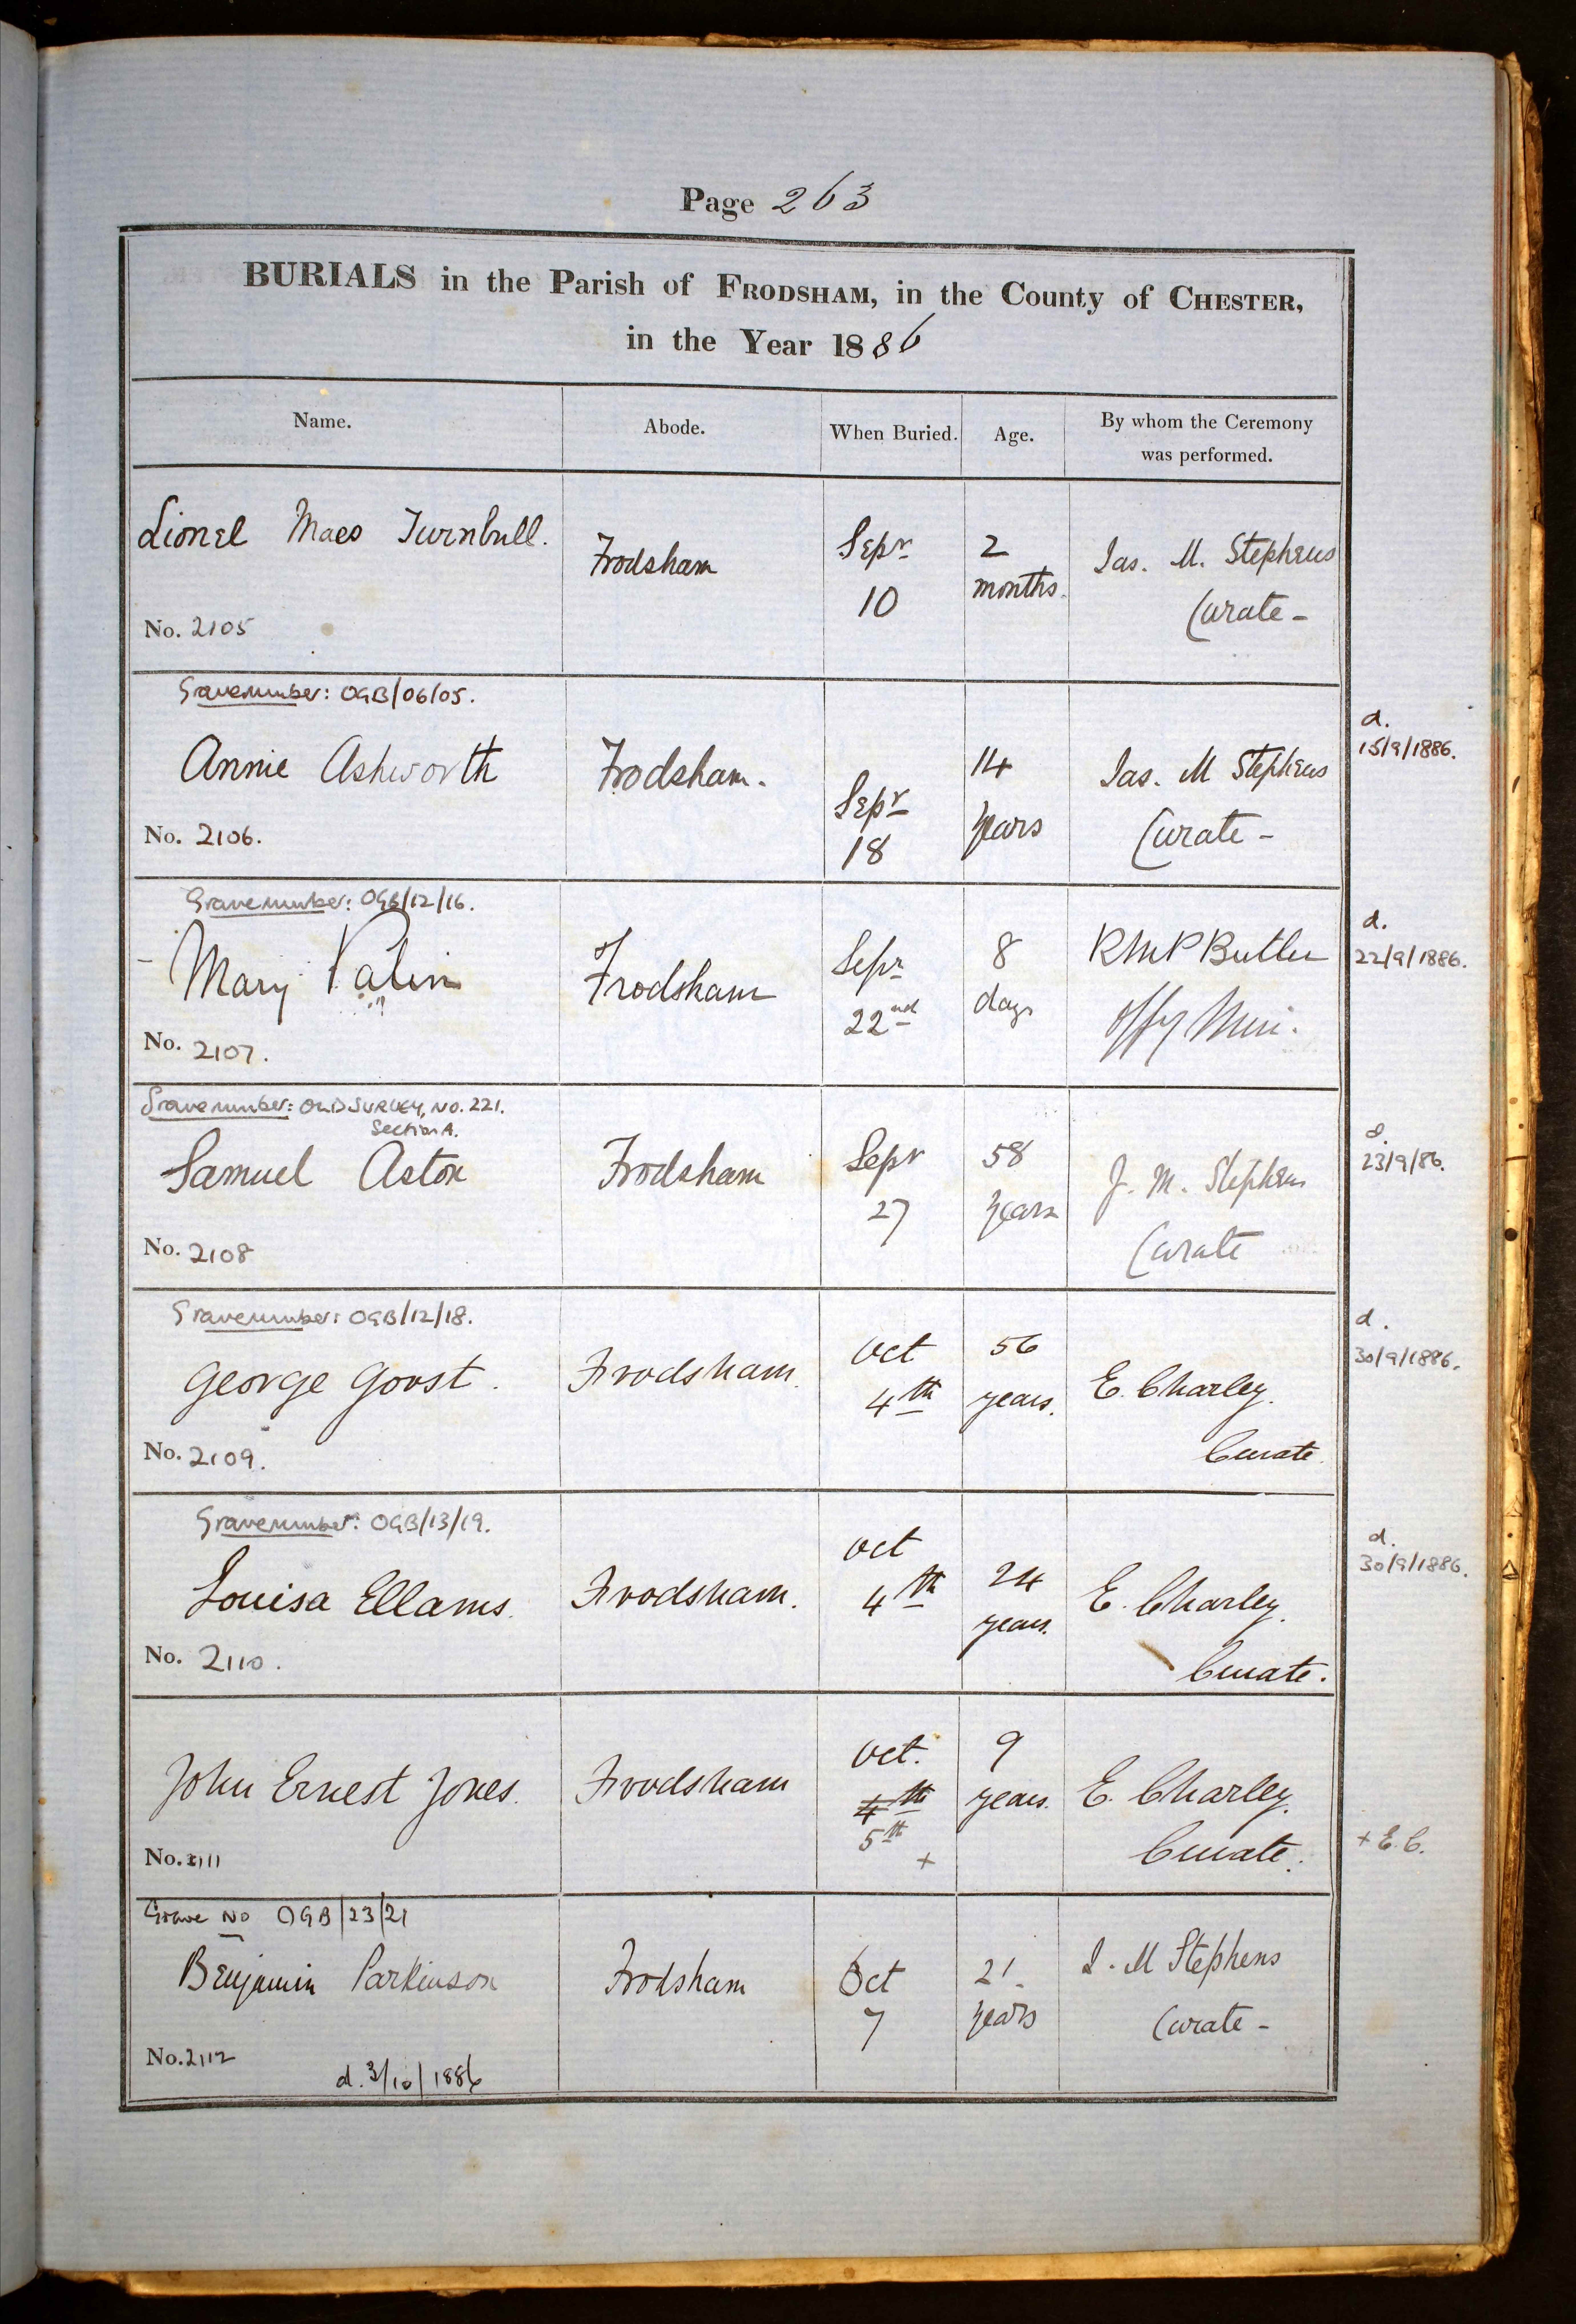 Page 263
BURIALS in the Parish of FRODSHAM, in the County of CHESTER,
in the Year 1886
Name. Abode. When Buried. Age. By whom the Ceremony was performed.
Lionel Maes Turnbull.
Frodsham
Sepr
10
2
months.
Jas. M. Stephens
Curate -
No. 2105
Gravenumber: OGB/06/05.
Annie Ashworth
Frodsham.
Sepr
18
14
years
Jas. M Stephens
Curate -
No. 2106.
d.
15/9/1886.
Gravenumber: OGB/12/16.
Mary Palin
Frodsham
Sepr
22nd
8
days
R M P Butler
Offg Mini.
No. 2107.
d.
22/9/1886.
Gravenumber: OLD SURVEY, NO. 221.
Section A.
Samuel Aston
Frodsham
Sepr
27
58
years
J. M. Stephens
Curate
No. 2108
d.
23/9/86.
Gravenumber: OGB/12/18.
George Goost.
Frodsham.
Oct
4th
56
years.
E. Charley.
Curate.
No. 2109.
d.
30/9/1886.
Gravenumber: OGB/13/19.
Louisa Ellams.
Frodsham.
Oct
4th
24
years.
E. Charley.
Curate.
No. 2110.
d.
30/9/1886.
John Ernest Jones.
Frodsham
Oct.
4th
5th
+
9
years.
E. Charley.
Curate.
No. 2111
+ E. C.
Grave No OGB/23/21
Benjamin Parkinson
Frodsham
Oct
7
21
years
J. M Stephens
Curate -
No. 2112
d. 3/10/1886